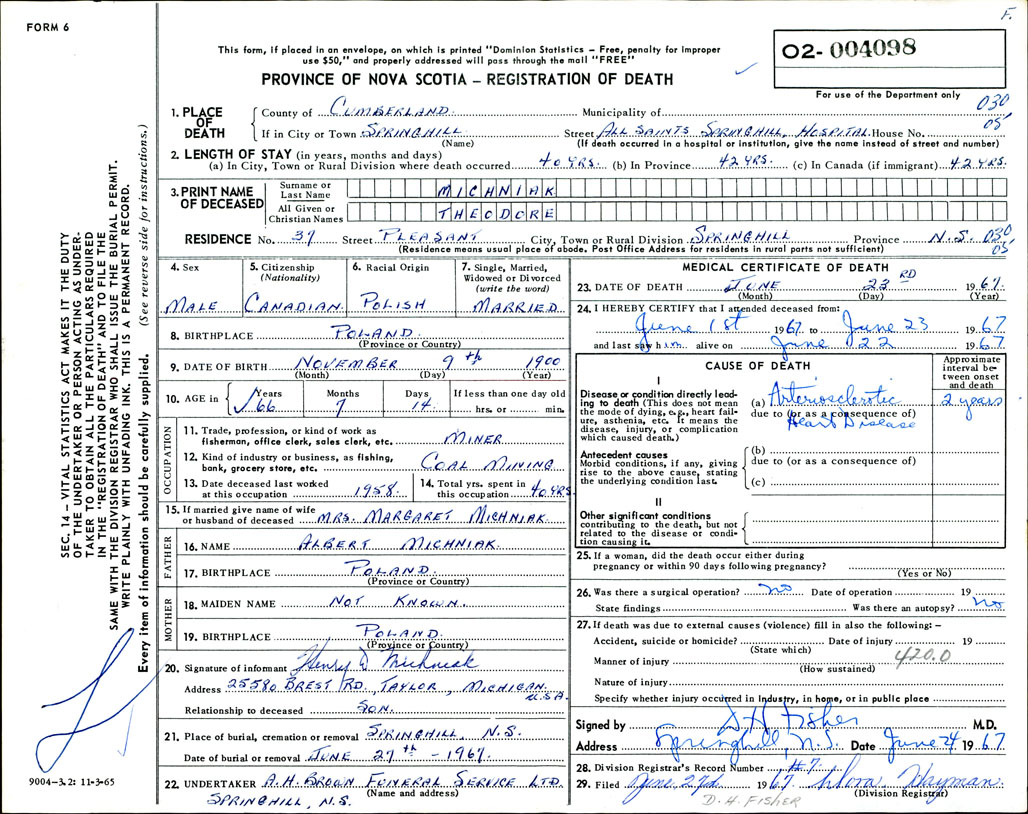 F.
FORM 6
This form, if placed in an envelope, on which is printed "Dominion Statistics – Free, penalty for improper
use $50," and properly addressed will pass through the mail "FREE"
O2- 004098
PROVINCE OF NOVA SCOTIA – REGISTRATION OF DEATH
For use of the Department only
030
05
1. PLACE OF DEATH
County of CUMBERLAND Municipality of
If in City or Town SPRINGHILL Street ALL SAINTS SPRINGHILL HOSPITAL House No.
(Name) (If death occurred in a hospital or institution, give the name instead of street and number)
2. LENGTH OF STAY (in years, months and days)
(a) In City, Town or Rural Division where death occurred 40 YRS. (b) In Province 42 YRS. (c) In Canada (if immigrant) 42 YRS.
3. PRINT NAME OF DECEASED
Surname or Last Name MICHNIAK
All Given or Christian Names THEODORE
RESIDENCE No. 37 Street PLEASANT City, Town or Rural Division SPRINGHILL Province N.S. 030
05
(Residence means usual place of abode. Post Office Address for residents in rural parts not sufficient)
4. Sex
MALE
5. Citizenship
(Nationality)
CANADIAN
6. Racial Origin
POLISH
7. Single, Married,
Widowed or Divorced
(write the word)
MARRIED
8. BIRTHPLACE POLAND
(Province or Country)
9. DATE OF BIRTH NOVEMBER 9th 1900
(Month) (Day) (Year)
10. AGE in
Years Months Days If less than one day old
66 7 14 hrs. or min.
OCCUPATION
11. Trade, profession, or kind of work as
fisherman, office clerk, sales clerk, etc. MINER
12. Kind of industry or business, as fishing,
bank, grocery store, etc. COAL MINING
13. Date deceased last worked
at this occupation 1958.
14. Total yrs. spent in
this occupation 40 YRS
15. If married give name of wife
or husband of deceased MRS. MARGARET MICHNIAK
FATHER
16. NAME ALBERT MICHNIAK
17. BIRTHPLACE POLAND
(Province or Country)
MOTHER
18. MAIDEN NAME NOT KNOWN.
19. BIRTHPLACE POLAND.
(Province or Country)
20. Signature of informant Henry D Michniak
Address 25580 BREST RD, TAYLOR, MICHIGAN.
U.S.A.
Relationship to deceased SON.
21. Place of burial, cremation or removal SPRINGHILL, N.S.
Date of burial or removal JUNE 27th - 1967.
22. UNDERTAKER A.H. BROWN FUNERAL SERVICE LTD.
(Name and address)
SPRINGHILL, N.S.
MEDICAL CERTIFICATE OF DEATH
23. DATE OF DEATH JUNE 23 RD 1967.
(Month) (Day) (Year)
24. I HEREBY CERTIFY that I attended deceased from:
June 1st 1967 to June 23 1967
and last saw him alive on June 22 1967
CAUSE OF DEATH
Approximate
interval be-
tween onset
and death
I
Disease or condition directly lead-
ing to death (This does not mean
the mode of dying, e.g., heart fail-
ure, asthenia, etc. It means the
disease, injury, or complication
which caused death.)
(a) Arteriosclerotic 2 years
due to (or as a consequence of)
Heart Disease
Antecedent causes
Morbid conditions, if any, giving
rise to the above cause, stating
the underlying condition last.
(b)
due to (or as a consequence of)
(c)
II
Other significant conditions
contributing to the death, but not
related to the disease or condi-
tion causing it.
25. If a woman, did the death occur either during
pregnancy or within 90 days following pregnancy?
(Yes or No)
26. Was there a surgical operation? no Date of operation 19
State findings Was there an autopsy? no
27. If death was due to external causes (violence) fill in also the following: –
Accident, suicide or homicide? Date of injury 19
(State which)
Manner of injury 420.0
(How sustained)
Nature of injury
Specify whether injury occurred in industry, in home, or in public place
Signed by D H Fisher M.D.
Address Springhill, N.S. Date June 24 1967
28. Division Registrar's Record Number #7
29. Filed June 27d 1967 Hayman
(Division Registrar)
D. H. FISHER
SEC. 14 – VITAL STATISTICS ACT MAKES IT THE DUTY
OF THE UNDERTAKER OR PERSON ACTING AS UNDER-
TAKER TO OBTAIN ALL THE PARTICULARS REQUIRED
IN THE "REGISTRATION OF DEATH" AND TO FILE THE
SAME WITH THE DIVISION REGISTRAR WHO SHALL ISSUE THE BURIAL PERMIT.
WRITE PLAINLY WITH UNFADING INK. THIS IS A PERMANENT RECORD.
Every item of information should be carefully supplied. (See reverse side for instructions.)
9004-3.2: 11-3-65